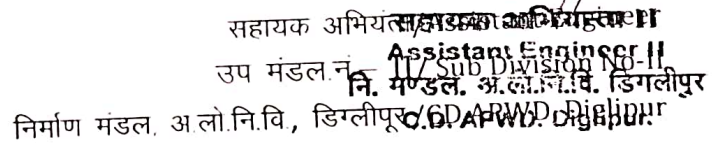 सहायक अभियंता/Assistant Engineer
सहायक अभियन्ता II
Assistant Engineer II
उप मंडल नं.– II/ Sub Division No-II
नि. मण्डल. अ.लो.नि.वि. डिगलीपुर
निर्माण मंडल, अ.लो.नि.वि., डिग्लीपूर/CD, APWD, Diglipur
C.D. APWD. Diglipur.